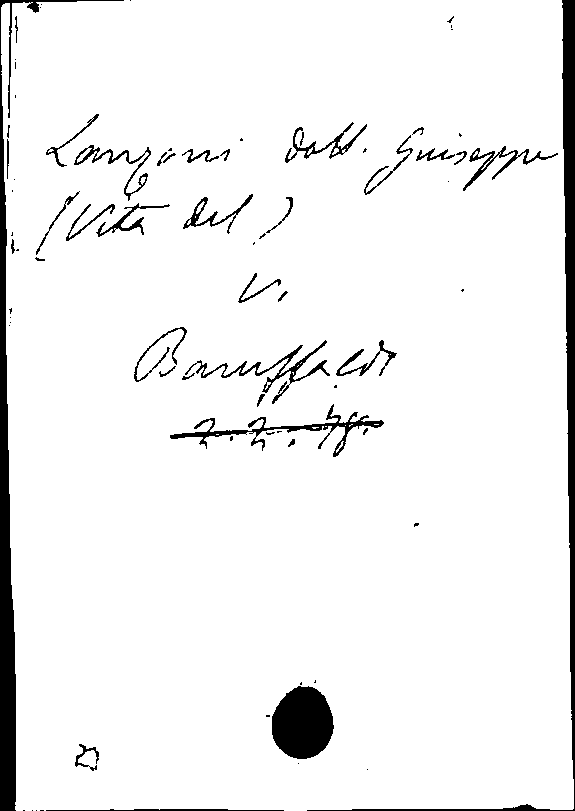 Lanzoni dott. Giuseppe
(Vita del)
v.
Baruffaldi
2. 2. 78.